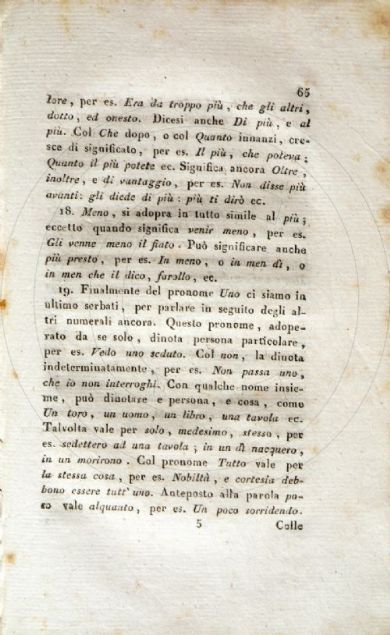 65
lore, per es. Era da troppo più, che gli altri,
dotto, ed onesto. Dicesi anche Di più, e al
più. Col Che dopo, o col Quanto innanzi, cre-
sce di significato, per es. Il più, che poteva;
Quanto il più potete ec. Significa ancora Oltre,
inoltre, e di vantaggio, per es. Non disse più
avanti: gli diede di più: più ti dirò ec.
18. Meno, si adopra in tutto simile al più;
eccetto quando significa venir meno, per es.
Gli venne meno il fiato. Può significare anche
più presto, per es. In meno, o in men dì, o
in men che il dico, farollo, ec.
19. Finalmente del pronome Uno ci siamo in
ultimo serbati, per parlare in seguito degli al-
tri numerali ancora. Questo pronome, adope-
rato da se solo, dinota persona particolare,
per es. Vedo uno seduto. Col non, la dinota
indeterminatamente, per es. Non passa uno,
che io non interroghi. Con qualche nome insie-
me, può dinotare e persona, e cosa, come
Un toro, un uomo, un libro, una tavola ec.
Talvolta vale per solo, medesimo, stesso, per
es. sedettero ad una tavola; in un dì nacquero,
in un morirono. Col pronome Tutto vale per
la stessa cosa, per es. Nobiltà, e cortesia deb-
bono essere tutt' uno. Anteposto alla parola po-
co vale alquanto, per es. Un poco sorridendo.
5 Colle